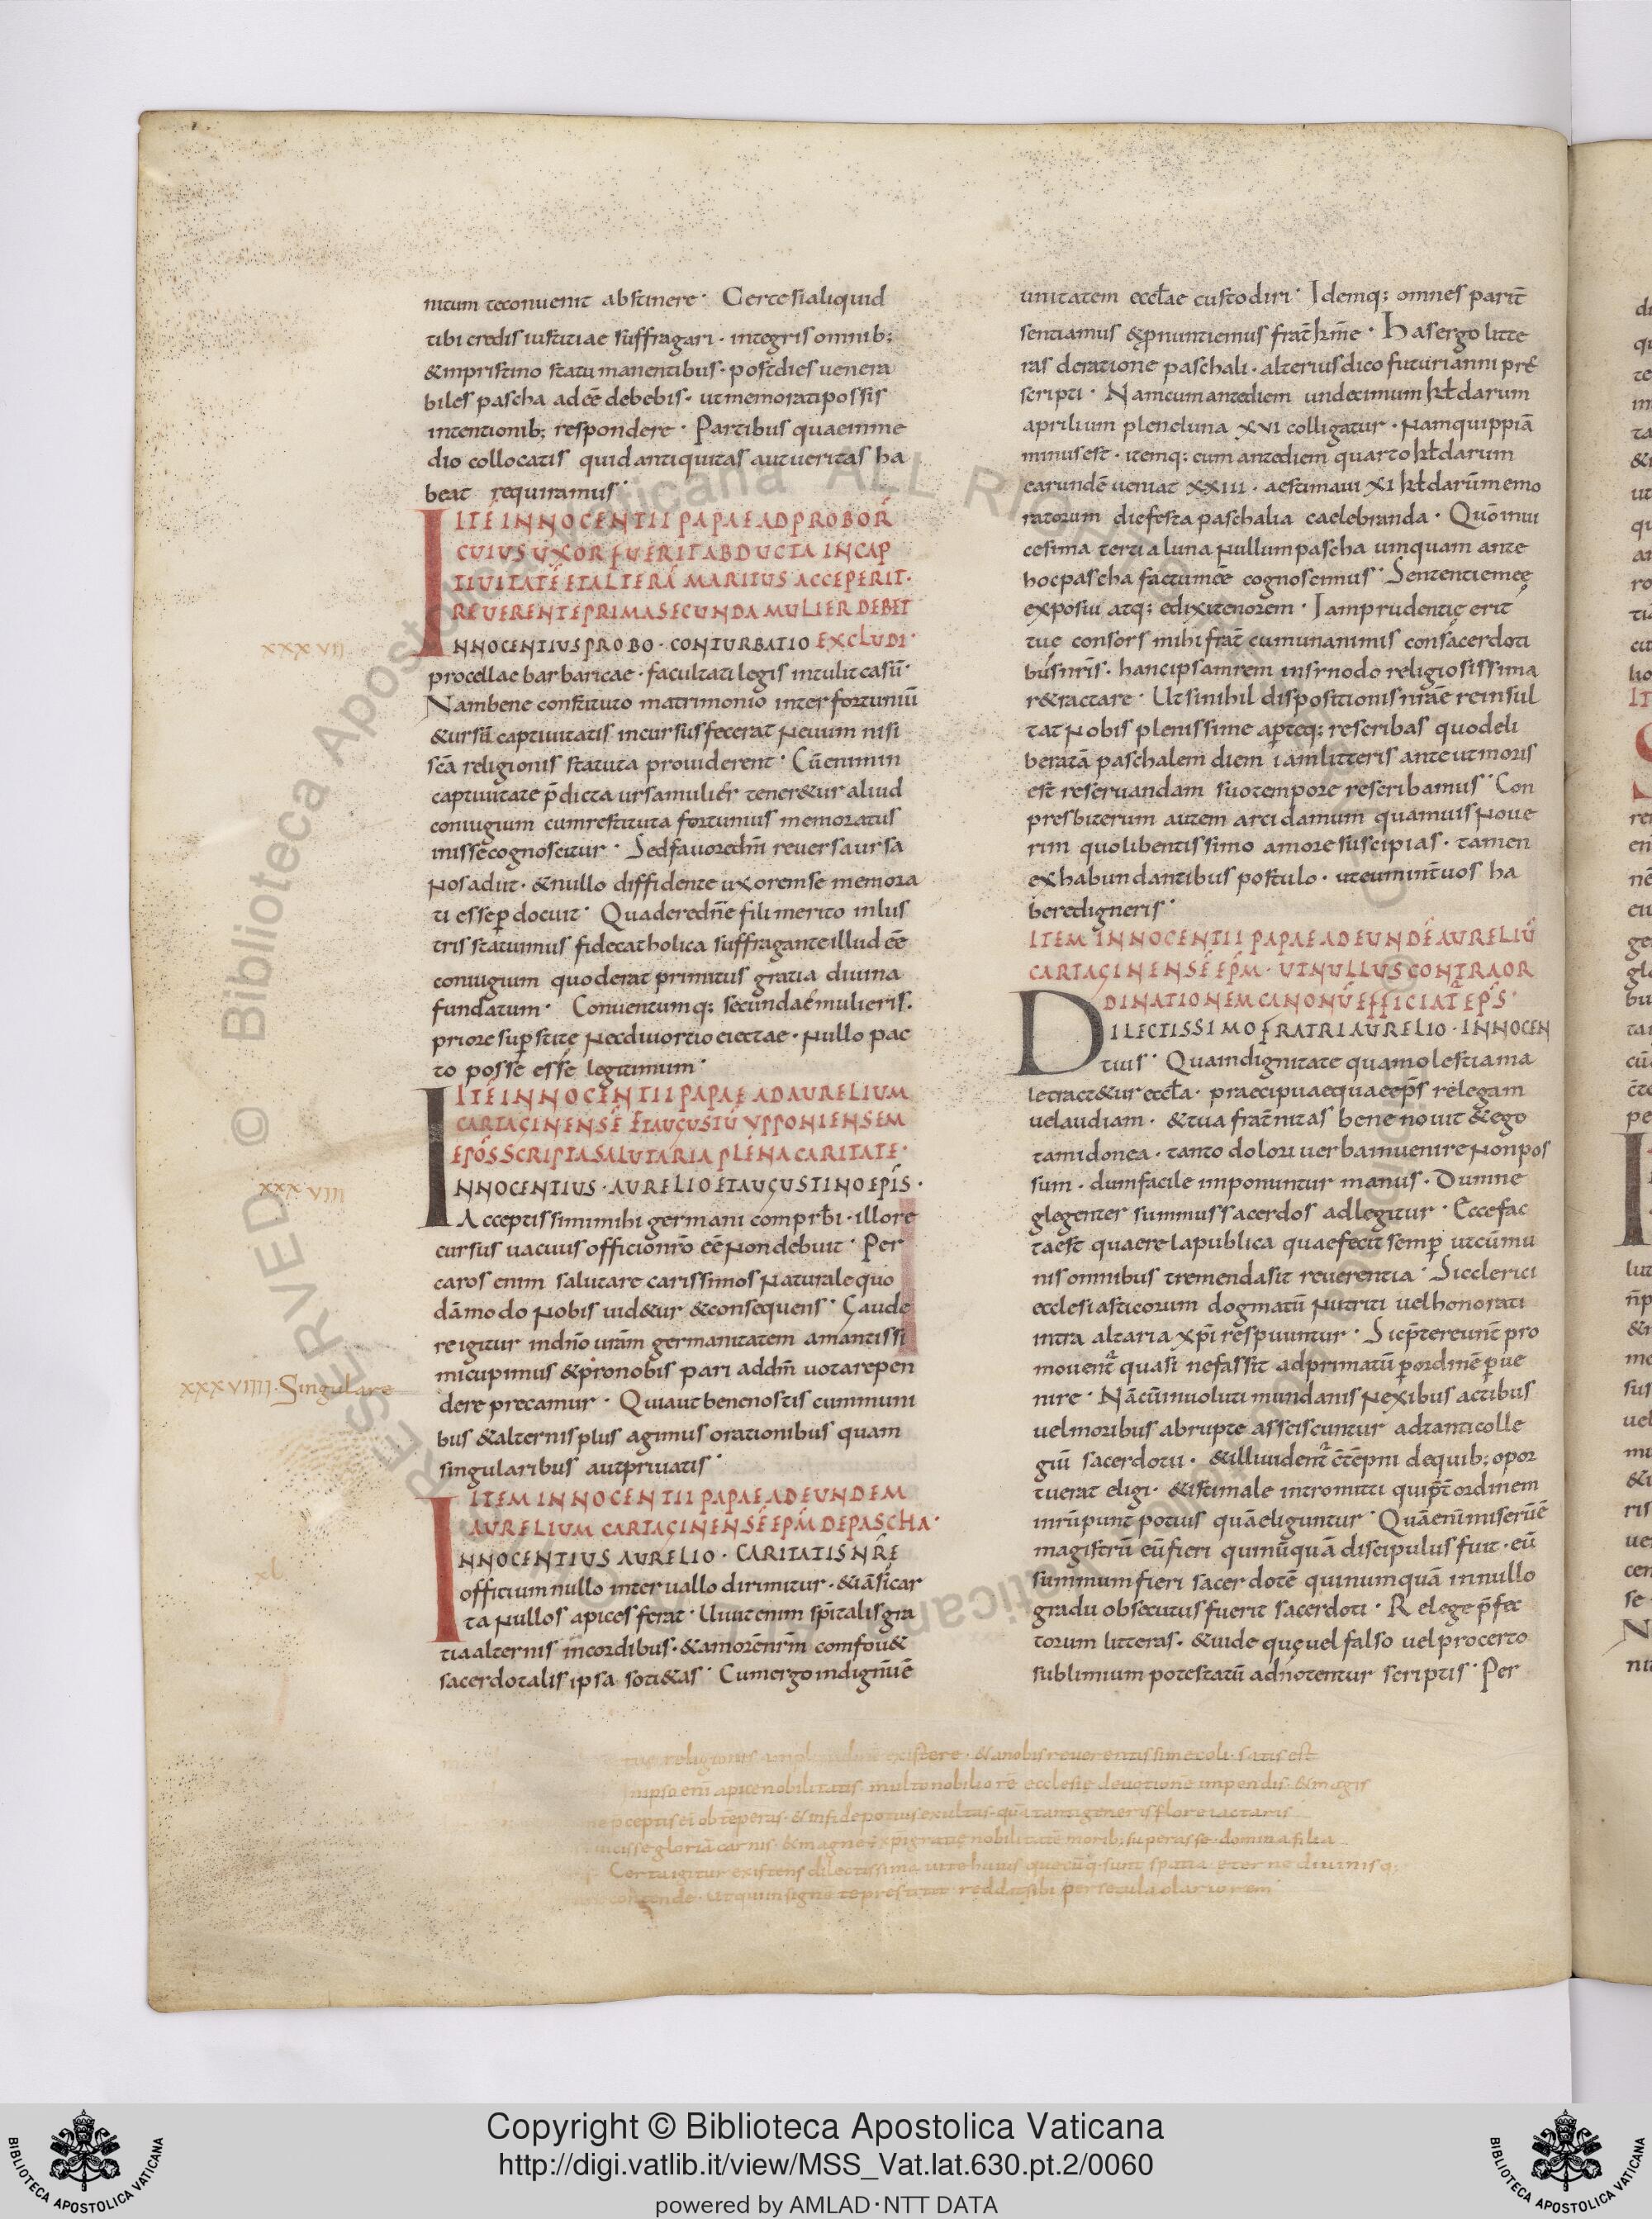 nitum te conuenit abstinere · Certe si aliquid
tibi credis iustitiae suffragari · integris omnib;
& in pristino statu manentibus · post dies uenera
biles pascha ad eē debebis · ut memorati possis
intentionib; respondere · Partibus quae in me
dio collocatis quid antiquitas aut ueritas ha
beat requiramus ·
ITĒ INNOCENTII PAPAE AD PROBOR̄
CUIUS UXOR FUERIT ABDUCTA IN CAP
TIUITATĒ ET ALTERĀ MARITUS ACCEPERIT ·
REUERENTE PRIMA SECUNDA MULIER DEBET
INNOCENTIUS PROBO · CONTURBATIO EXCLUDI ·
xxxvii
procellae barbaricae · facultati legis intulit casū ·
Nam bene constituto matrimonio inter fortuniū
& ursā captiuitatis incursus fecerat neuum nisi
scā religionis statuta prouiderent · Cū enim in
captiuitate p̄dicta ursa mulier teneretur aliud
coniugium cum restituta fortunius memoratus
inisse cognoscitur · Sed fauore dn̄i reuersa ursa
nos adiit · & nullo diffidente uxorem se memora
ti esse ꝑdocuit · Qua de re dn̄e fili merito inlus
tris statuimus fide catholica suffragante illud eē
coniugium quod erat primitus gratia diuina
fundatum · Conuentumq; secundae mulieris ·
priore suꝑstite nec diuortio eiectae · nullo pac
to posse esse legitimum ·
ITĒ INNOCENTII PAPAE AD AURELIUM
CARTAGINENSĒ ET AUGUSTIŪ YPPONIENSEM
EPŌS SCRIPTA SALUTARIA PLENA CARITATE ·
INNOCENTIUS · AURELIO ET AUGUSTINO EPIS ·
xxxviii
Acceptissimi mihi germani comprƀi · illo re
cursus uacuus officio nr̄o eē non debuit · Per
caros enim salutare carissimos naturale quo
dāmodo nobis uid&ur & consequens · Gaude
re igitur in dn̄o uram germanitatem amantissi
mi cupimus & pro nobis pari ad dm̄ uota repen
dere precamur · Quia ut bene nostis communi
xxxviiii · Singulare
bus & alternis plus agimus orationibus quam
singularibus aut priuatis ·
ITEM INNOCENTII PAPAE AD EUNDEM
AURELIUM CARTAGINENSĒ EPM̄ DE PASCHA ·
INNOCENTIUS AURELIO · CARITATIS NRĒ
xl
officium nullo interuallo dirimitur · & iā si car
ta nullos apices ferat · Uiuit enim spītalis gra
tia alternis in cordibus · & amorē nr̄m comfou&
sacerdotalis ipsa soti&as · Cum ergo in dignū ē
unitatem eccƚae custodiri · Idemq; omnes parit̄
sentiamus & ꝓnuntiemus frat̄ km̄e · Has ergo litte
ras de ratione paschali · alterius dico futuri anni prē
scripti · Nam cum ante diem undecimum kƚdarum
aprilium plene luna xvi colligatur · nam quippiā
minus est · itemq; cum ante diem quarto kƚdarum
earundē ueniat xxiii · aestimaui xi kƚdarū memo
ratorum die festa paschalia caelebranda · Quō in ui
cesima tertia luna nullum pascha umquam ante
hoc pascha factum eē cognoscimus · Sententię meę
exposui atq; edixi tenorem · Iam prudentię erit
tuę consors mihi frat̄ cum unanimis consacerdoti
bus nr̄is · hanc ipsam rem in sinodo religiosissima
r&ractare · Ut si nihil dispositionis nrāe re insul
tat nobis plenissime aꝑteq; rescribas quo deli
beratā paschalem diem iam litteris ante ut moris
est reseruandam suo tempore rescribamus · Con
presbiterum autem arcidamum quamuis noue
rim quo libentissimo amore suscipias · tamen
ex habundantibus postulo · ut eum int̄ uos ha
bere digneris ·
ITEM INNOCENTII PAPAE AD EUNDĒ AURELIŪ
CARTAGINENSĒ EPM̄ · UT NULLUS CONTRA OR
DINATIONEM CANONŪ EFFICIAT̄ EPS̄ ·
DILECTISSIMO FRATRI AURELIO · INNOCEN
tius · Qua indignitate qua molestia ma
le tract&ur eccƚa · praecipua aequa e ep̄s relegam
uel audiam · & tua frat̄nitas bene nouit & ego
tam idonea · tanto dolori uerba inuenire non pos
sum · dum facile imponuntur manus · Dum ne
glegenter summus sacerdos adlegitur · Ecce fac
ta est quaere la publica quae fecit semꝑ ut cū mu
nis omnibus tremenda sit reuerentia · Sic clerici
ecclesiasticorum dogmatū nutriti uel honorati
intra altaria xp̄i respuuntur · Sic p̄tereunt̄ pro
mouent̄ quasi nefas sit ad primatū ꝑ ordinē ꝑue
nire · Nā cū inuoluti mundanis nexibus actibus
uel moribus abrupte assciscuntur ad tanti colle
giū sacerdotii · & illi uident̄ eē de quib; opor
tuerat eligi · & isti male intromitti qui p̄t ordinem
inrūpunt potius quā eliguntur · Quā enī miserū ē
magistrū eū fieri qui nūquā discipulus fuit · eū
summum fieri sacerdotē qui numquā in nullo
gradu obsecutus fuerit sacerdoti · Relege p̄fec
torum litteras · & uide quę uel falso uel pro certo
sublimium potestatū adnotentur scriptis · Per
tuę religionis existere · & a nobis reuerentissime coli · satis est
in ipso eni apice nobilitatis multo nobiliorē ecclesię deuotionē impendis · & magis
pceptis ei obtēperas · & in fide potius exultas · quā tanti generis flore iactaris
uicisse gloriā carnis · & magnę xp̄i gratię nobilitatē morib; superasse · domina filia
Certa igitur existens dilectissima
Copyright © Biblioteca Apostolica Vaticana
http://digi.vatlib.it/view/MSS_Vat.lat.630.pt.2/0060
powered by AMLAD·NTT DATA
BIBLIOTECA APOSTOLICA VATICANA
BIBLIOTECA APOSTOLICA VATICANA